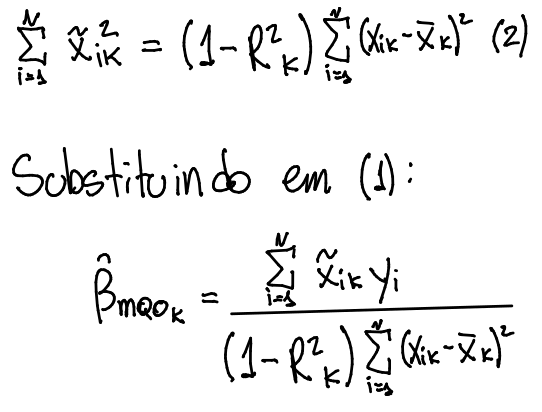 $\sum_{i=1}^{N} \tilde{x}_{iK}^{2} = (1 - R^{2}_{K}) \sum_{i=1}^{N} (x_{iK} - \bar{x}_{K})^{2}$ (2)
Substituindo em (1):
$\hat{\beta}_{MQO_K} = \frac{\sum_{i=1}^{N} \tilde{x}_{iK} y_i}{(1 - R^{2}_{K}) \sum_{i=1}^{N} (x_{iK} - \bar{x}_{K})^{2}}$